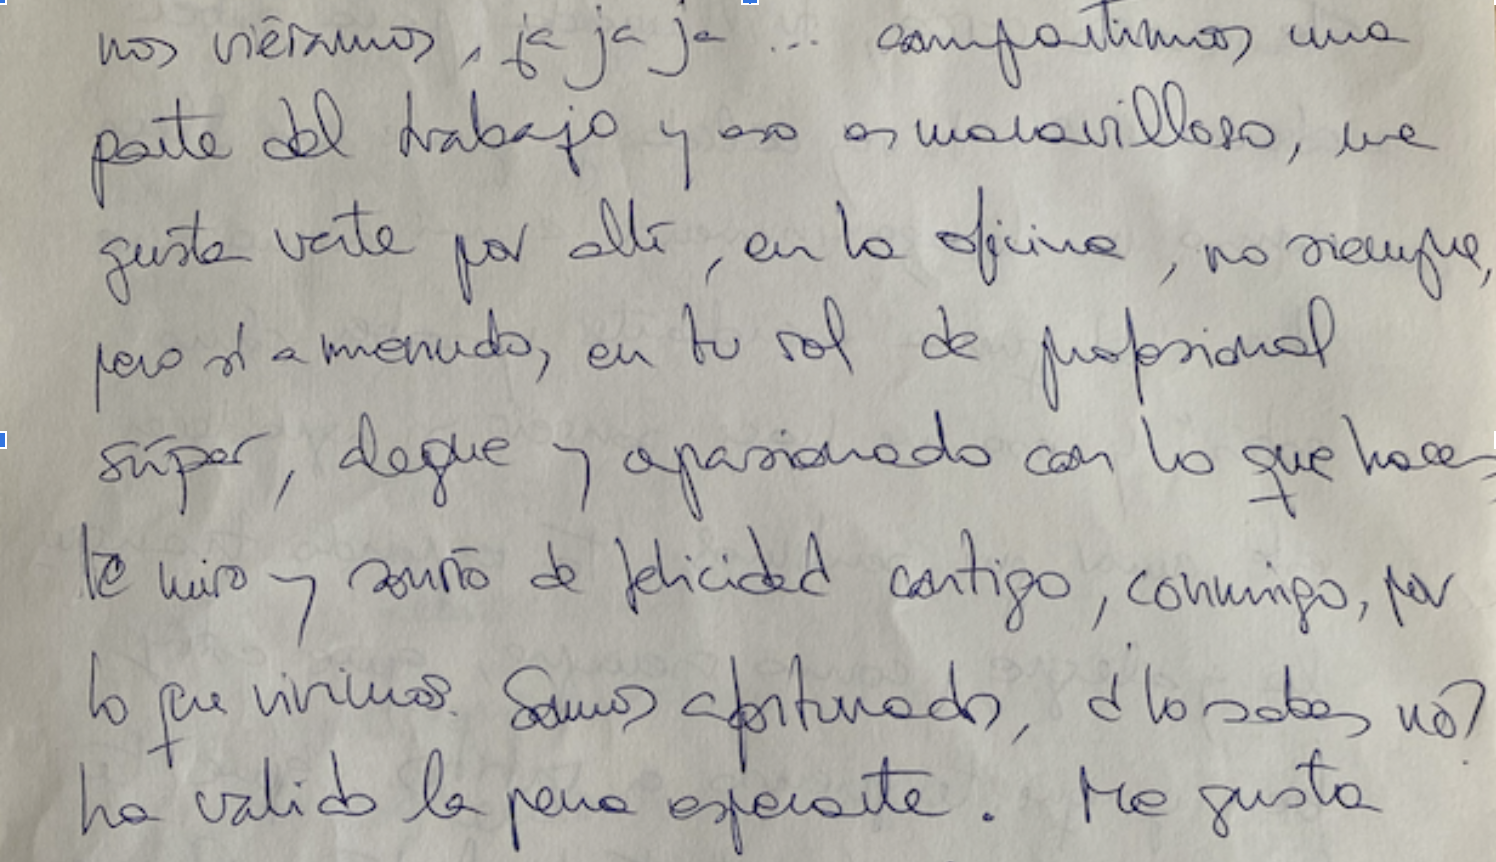 nos viéramos, ja ja ja ... compartimos una
parte del trabajo y eso es maravilloso, me
gusta verte por allí, en la oficina, no siempre,
pero sí a menudo, en tu rol de profesional
súper, alegre y apasionado con lo que haces
te miro y sonrío de felicidad contigo, conmigo, por
lo que vivimos. Somos afortunados, ¿lo sabes no?
ha valido la pena esperarte. Me gusta